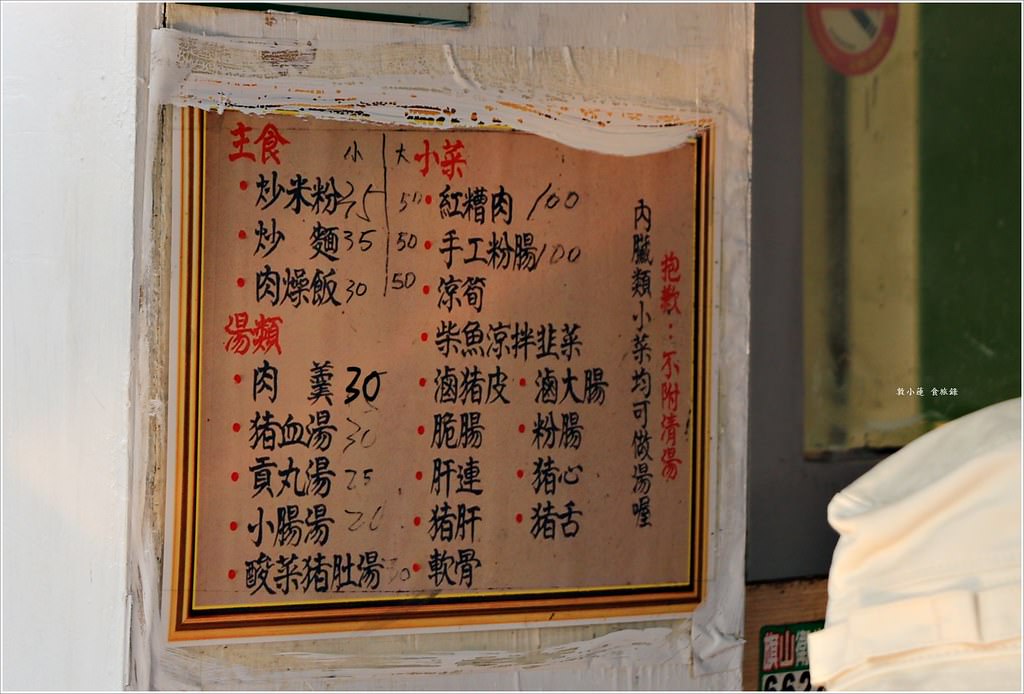 主食 小 大
炒米粉 35 50
炒麵 35 50
肉燥飯 30 50
湯類
肉羹 30
豬血湯 30
貢丸湯 25
小腸湯 20
酸菜豬肚湯 30
小菜
紅糟肉 100
手工粉腸 100
涼筍
柴魚涼拌韭菜
滷豬皮 滷大腸
脆腸 粉腸
肝連 豬心
豬肝 豬舌
軟骨
內臟類小菜均可做湯喔
抱歉：不附清湯
敦小蓮 食旅錄
旗山